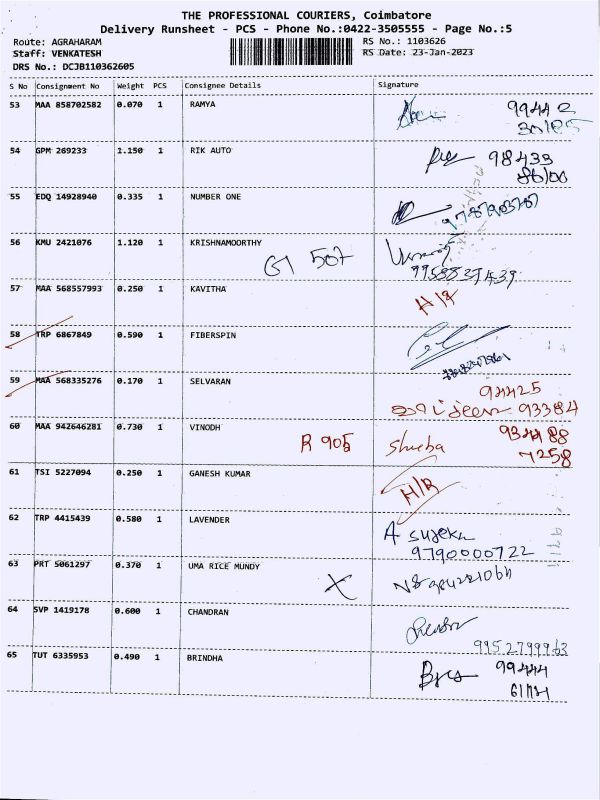 THE PROFESSIONAL COURIERS, Coimbatore
Delivery Runsheet - PCS - Phone No.:0422-3505555 - Page No.:5
Route: AGRAHARAM
Staff: VENKATESH
DRS No.: DCJB110362605
RS No.: 1103626
RS Date: 23-Jan-2023
S No Consignment No Weight PCS Consignee Details Signature
53 MAA 858702582 0.070 1 RAMYA 99442
30185
54 GPM 269233 1.150 1 RIK AUTO 98433
86100
55 EDQ 14928940 0.335 1 NUMBER ONE
56 KMU 2421076 1.120 1 KRISHNAMOORTHY G1 507
57 MAA 568557993 0.250 1 KAVITHA H/R
58 TRP 6867849 0.590 1 FIBERSPIN
59 MAA 568335276 0.170 1 SELVARAN 94425
93384
60 MAA 942646281 0.730 1 VINODH R 905 93488
7258
61 TSI 5227094 0.250 1 GANESH KUMAR H/R
62 TRP 4415439 0.580 1 LAVENDER A
9790000722
63 PRT 5061297 0.370 1 UMA RICE MUNDY X
64 SVP 1419178 0.600 1 CHANDRAN
9952799963
65 TUT 6335953 0.490 1 BRINDHA 99444